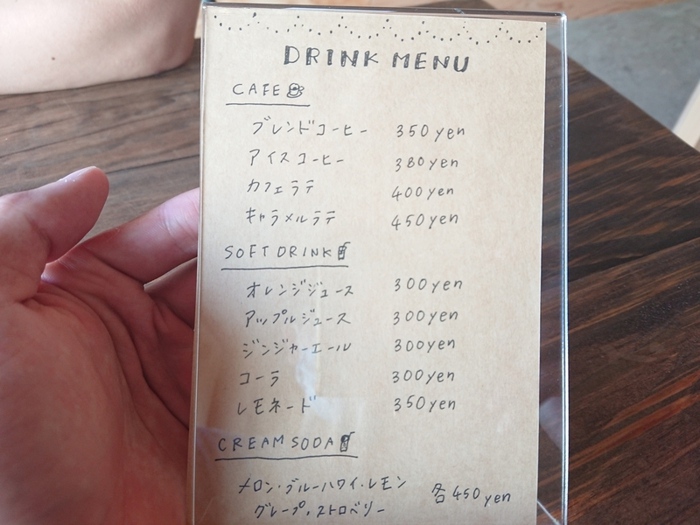 DRINK MENU
CAFE
ブレンドコーヒー 350yen
アイスコーヒー 380yen
カフェラテ 400yen
キャラメルラテ 450yen
SOFT DRINK
オレンジジュース 300yen
アップルジュース 300yen
ジンジャーエール 300yen
コーラ 300yen
レモネード 350yen
CREAM SODA
メロン・ブルーハワイ・レモン 各450yen
グレープ・ストロベリー